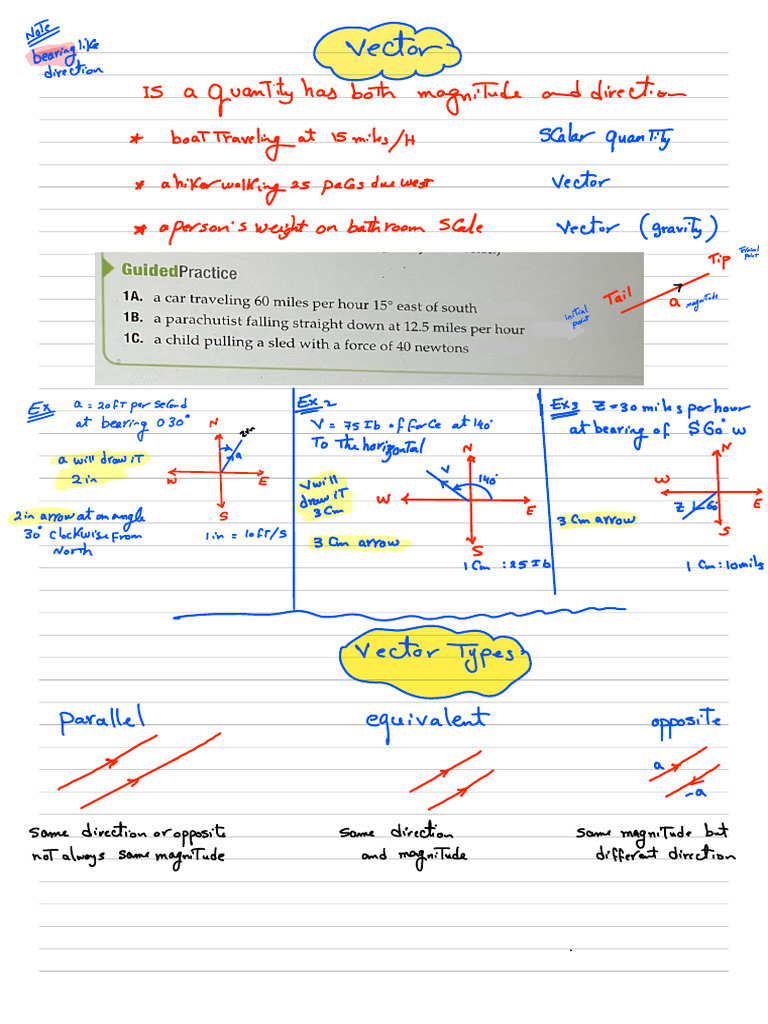 Note
bearing like
direction
Vector
IS a QuanTiTy has both magniTude and direction
* boaT Traveling at 15 miles/H Scalar quanTiTy
* a hiker walking 25 paces due west Vector
* a person's weight on bathroom Scale Vector (gravity)
GuidedPractice
1A. a car traveling 60 miles per hour 15° east of south
1B. a parachutist falling straight down at 12.5 miles per hour
1C. a child pulling a sled with a force of 40 newtons
Tip
Tail
a
magnitude
initial
point
Ex
a = 20 fT per Second
at bearing 030°
a will draw iT
2 in
2 in arrow at an angle
30° Clockwise From
North
N
2in
a
W
E
S
1 in = 10 fT/S
Ex 2
V = 75 Ib of forCe at 140°
To The horizontal
V will
draw iT
3 Cm
3 Cm arrow
N
V
140°
W
E
S
1 Cm : 25 Ib
Ex 3
Z = 30 miles per hour
at bearing of S60°W
3 Cm arrow
N
W
E
Z
60°
S
1 Cm : 10 mils
Vector Types
parallel
equivalent
opposiTe
a
-a
same direction or opposite
noT always same magniTude
same direction
and magniTude
same magniTude but
different direction